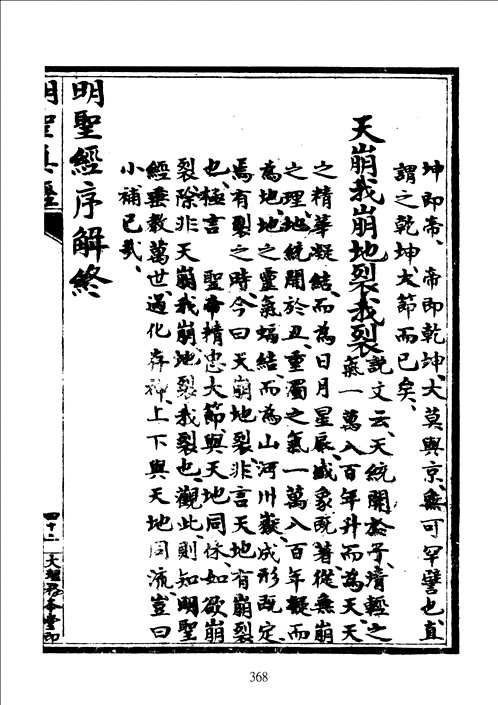 坤即帝、帝即乾坤、大莫與京、無可罕譬也、直
謂之乾坤大節而已矣、
天崩我崩地裂我裂
説文云、天統開於子、清輕之
氣一萬八百年升而為天、天
之精華凝結、而為日月星辰、盛象既著、從無崩
之理、地統開於丑、重濁之氣一萬八百年凝而
為地、地之靈氣蟠結、而為山河川嶽、成形既定
焉有裂之時、今曰天崩地裂、非言天地有崩裂
也、極言 聖帝精忠大節、與天地同休、如欲崩
裂、除非天崩我崩、地裂我裂也、觀此、則知明聖
經垂教萬世、過化存神、上下與天地同流、豈曰
小補已哉、
明聖經序解終
明聖真經
四十二
368